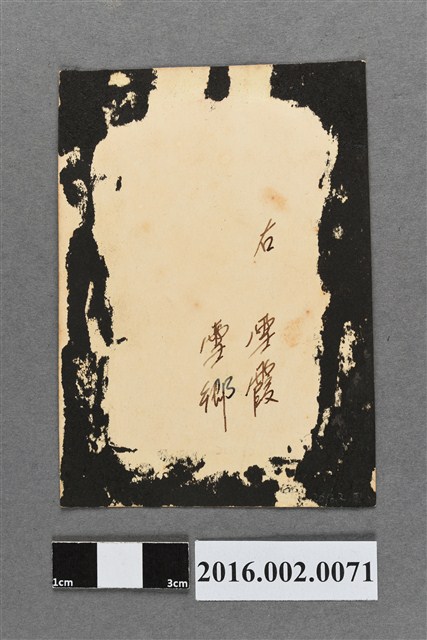 右 雲霞
雲鄉
1cm 3cm
2016.002.0071